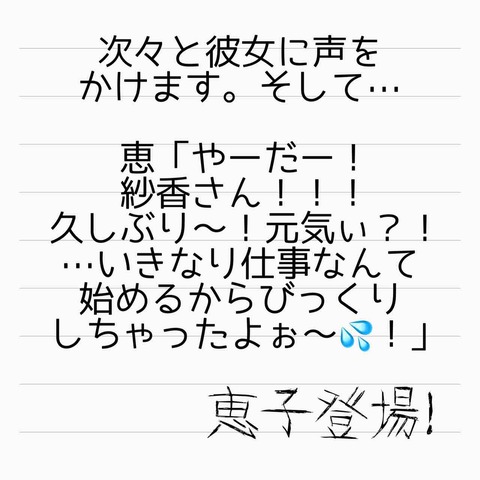 次々と彼女に声を
かけます。そして…
恵「やーだー！
紗香さん！！！
久しぶり〜！元気ぃ？！
…いきなり仕事なんて
始めるからびっくり
しちゃったよぉ〜💦！」
恵子登場!